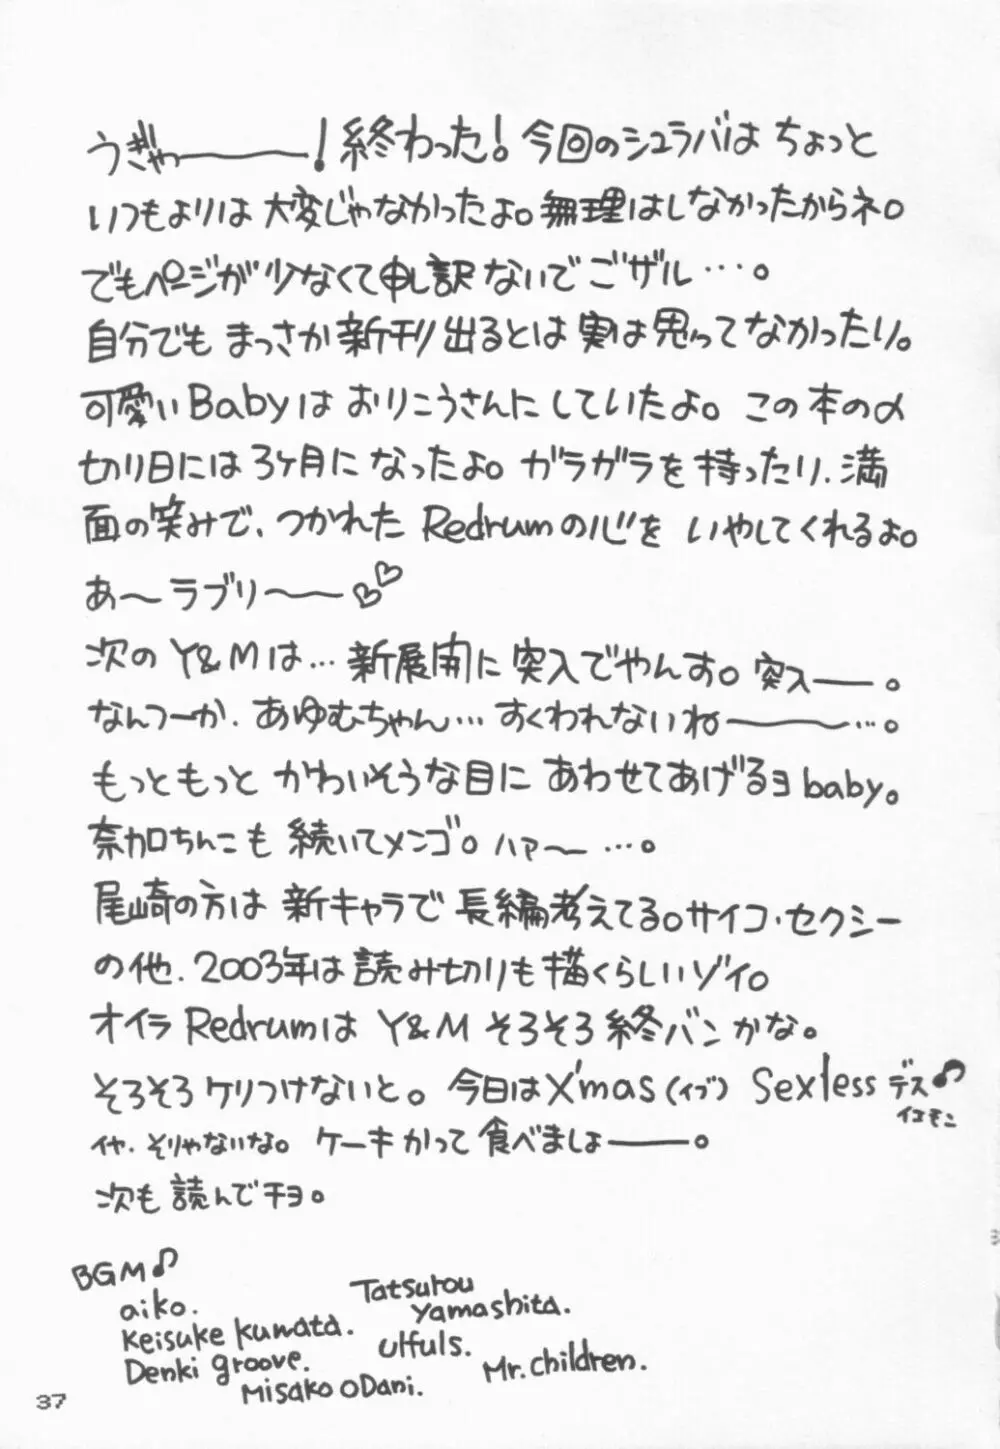 うぎゃーーー！終わった！今回のシュラバは ちょっと
いつもよりは 大変じゃなかったよ。無理はしなかったからネ。
でもページが 少なくて申し訳ないで ござル…。
自分でも まっさか新刊出るとは 実は思ってなかったり。
可愛い Babyは おりこうさんにしていたよ。この本の〆
切り日には 3ヶ月に なったよ。ガラガラを 持ったり、満
面の笑みで、つかれた Redrumの心を いやしてくれるよ。
あ〜ラブリ〜〜♡♡
次の Y&Mは… 新展開に 突入でやんす。突入ーー。
なんつーか、あゆむちゃん… すくわれないねーーー…。
もっともっと かわいそうな目に あわせてあげるヨ baby。
奈加ちんこも 続いてメンゴ。ハァ〜 …。
尾崎の方は 新キャラで 長編考えてる。サイコ・セクシー
の他、2003年は 読み切りも 描くらしいゾイ。
オイラ Redrumは Y&M そろそろ 終バンかな。
そろそろ ケリつけないと。今日は X'mas（イブ） Sexless デス♪
イエモン
イヤ、そりゃないな。ケーキかって 食べましょーーー。
次も 読んで チョ。
BGM♪
aiko.
Tatsurou
Yamashita.
Keisuke Kuwata.
Ulfuls.
Denki groove.
Mr.children.
Misako ODani.
37